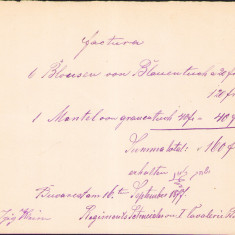 factura
6 Blousen von Blauentuch a 20 fr
120 fr
1 Mantel von grauentuch 40 fr = 40 fr
Summa total: 160 fr
erhalten
Bucarest am 16ten September 1877
Regiments von I Cavalerie